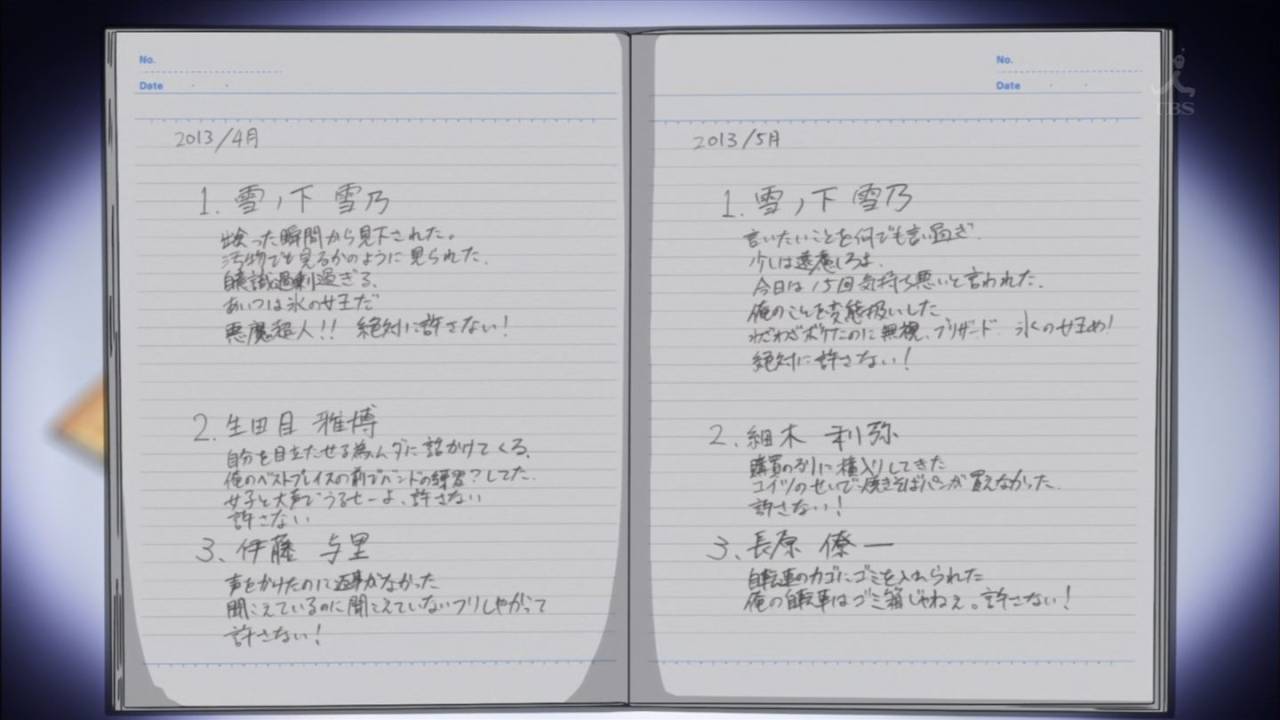 No.
Date
2013/4月
1. 雪ノ下 雪乃
出会った瞬間から見下された。
汚物でも見るかのように見られた。
自意識過剰過ぎる。
あいつは氷の女王だ
悪魔超人!! 絶対に許さない!
2. 生田目 雅博
自分を目立たせる為ムダに話かけてくる。
俺のベストプレイスの前でバンドの練習?してた。
女子と大声でうるせーよ、許さない
許さない
3. 伊藤 与里
声をかけたのに返事がなかった
聞こえているのに聞こえていないフリしやがって
許さない!
No.
Date
2013/5月
1. 雪ノ下 雪乃
言いたいことを何でも言い過ぎ
少しは遠慮しろよ.
今日は15回気持ち悪いと言われた.
俺のことを変態扱いした
わざわざボケたのに無視、ブリザード 氷の女王め!
絶対に許さない!
2. 細木 利弥
購買の列に横入りしてきた
コイツのせいで焼きそばパンが買えなかった.
許さない!
3. 長原 僚一
自転車のカゴにゴミを入れられた
俺の自転車はゴミ箱じゃねぇ。許さない!
TBS